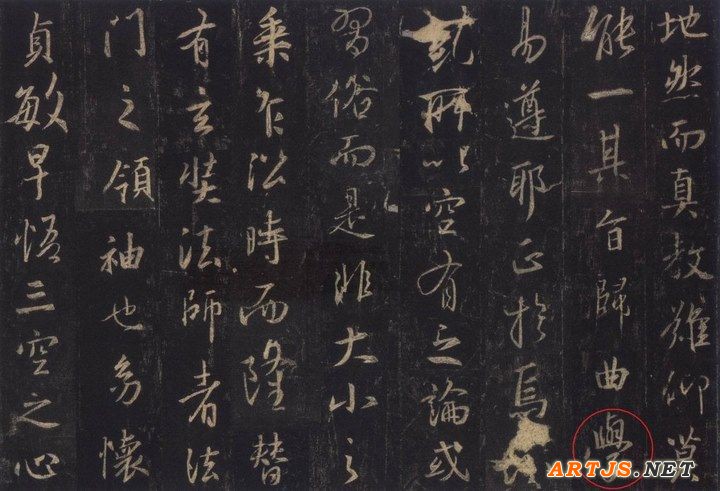 地然而真教難仰莫
能一其旨歸曲學
易遵耶正於焉
託所以空有之論或
習俗而是非大小之
乘乍㳂時而隆替
有玄奘法師者法
門之領袖也幼懷
貞敏早悟三空之心
ARTJS.NET